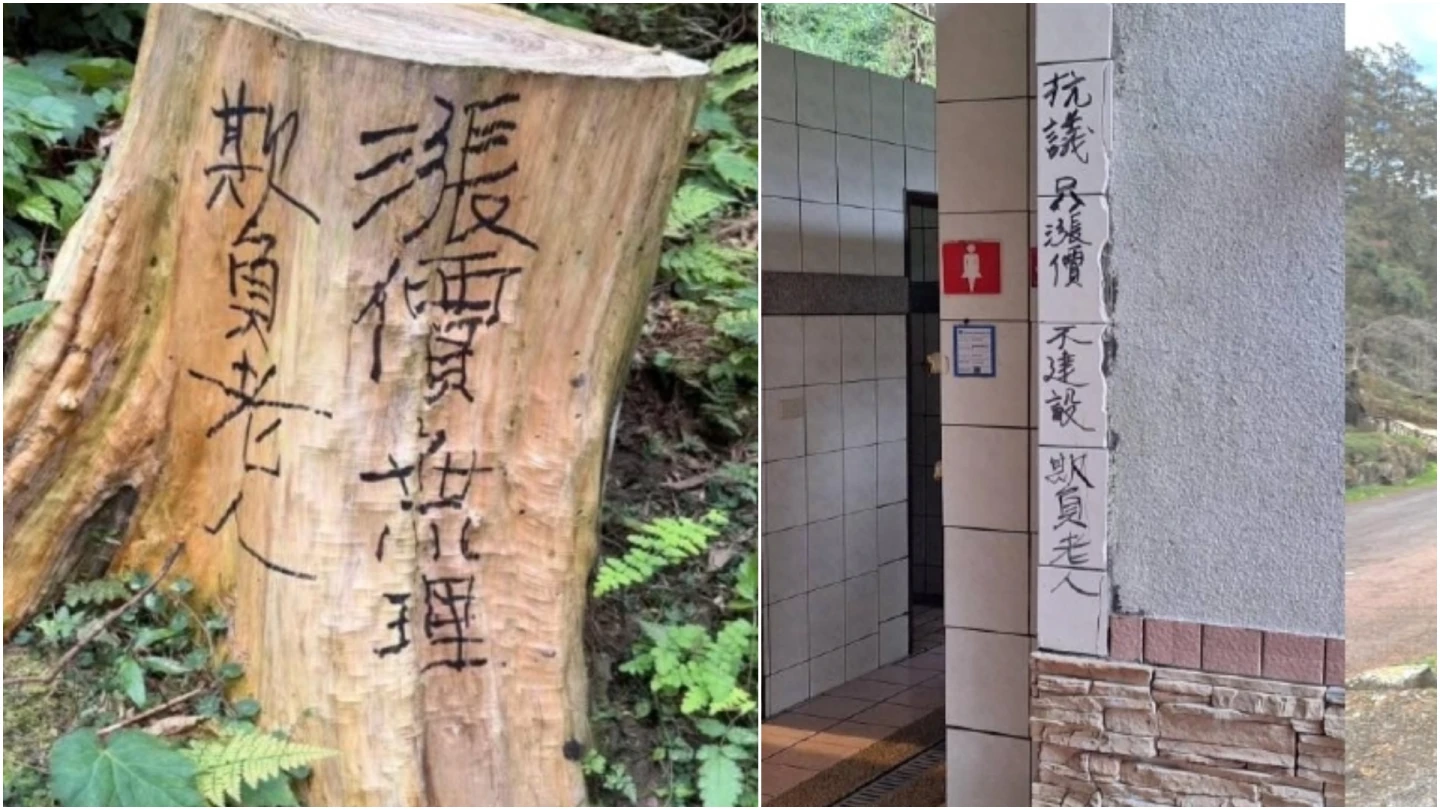 漲價無理
欺負老人
抗議只漲價不建設欺負老人